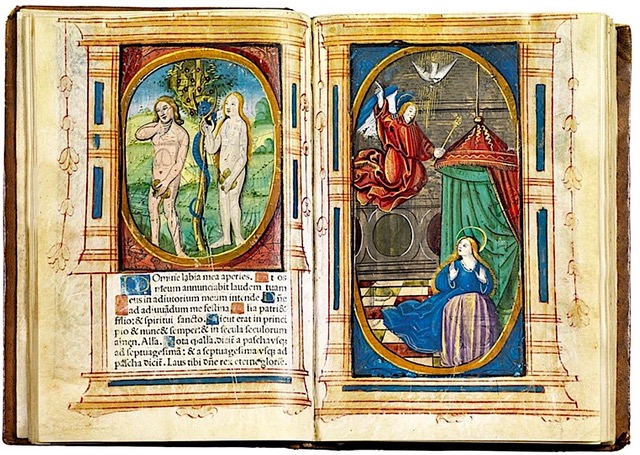 Domine labia mea aperies. Et os
meum annunciabit laudem tuam
Deus in adiutorium meum intende. Dñe
ad adiuvãdum me festina. Glia patri &
filio: & spiritui sancto. Sicut erat in princi
pio & nunc & semper: & in secula seculorum
amen. Alla. Nota q alla. dicit̃ a pascha vsq; ad
septuagesimã: & a septuagesima vsq; ad
pascha dicit̃. Laus tibi dñe rex eterne glorie.